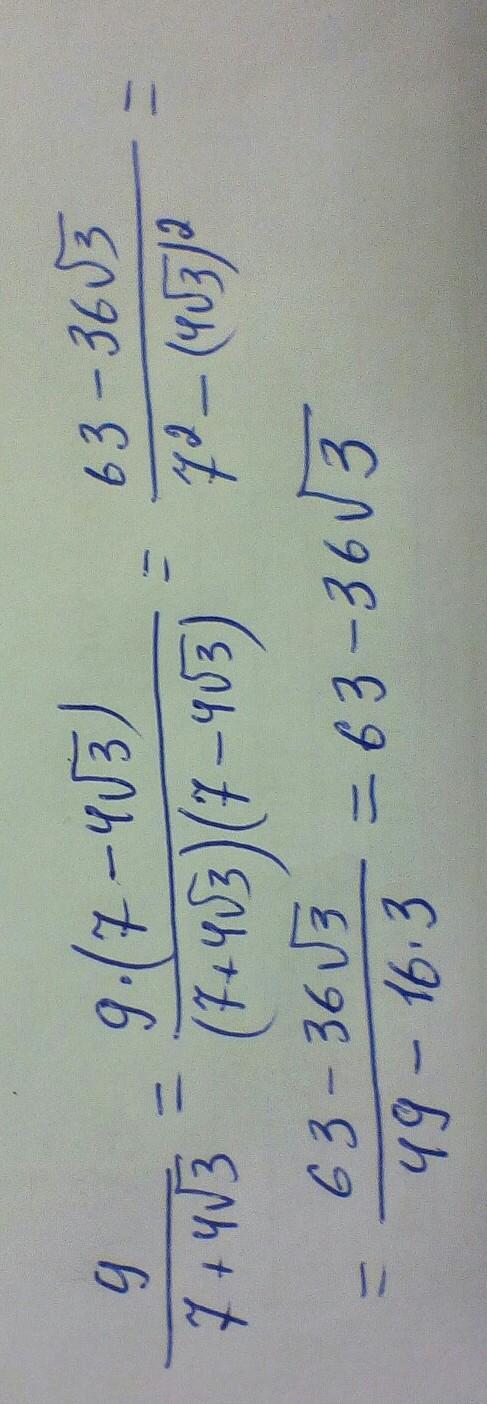 9/(7+4√3) = 9·(7−4√3)/((7+4√3)(7−4√3)) = (63−36√3)/(7²−(4√3)²) =
= (63−36√3)/(49−16·3) = 63−36√3